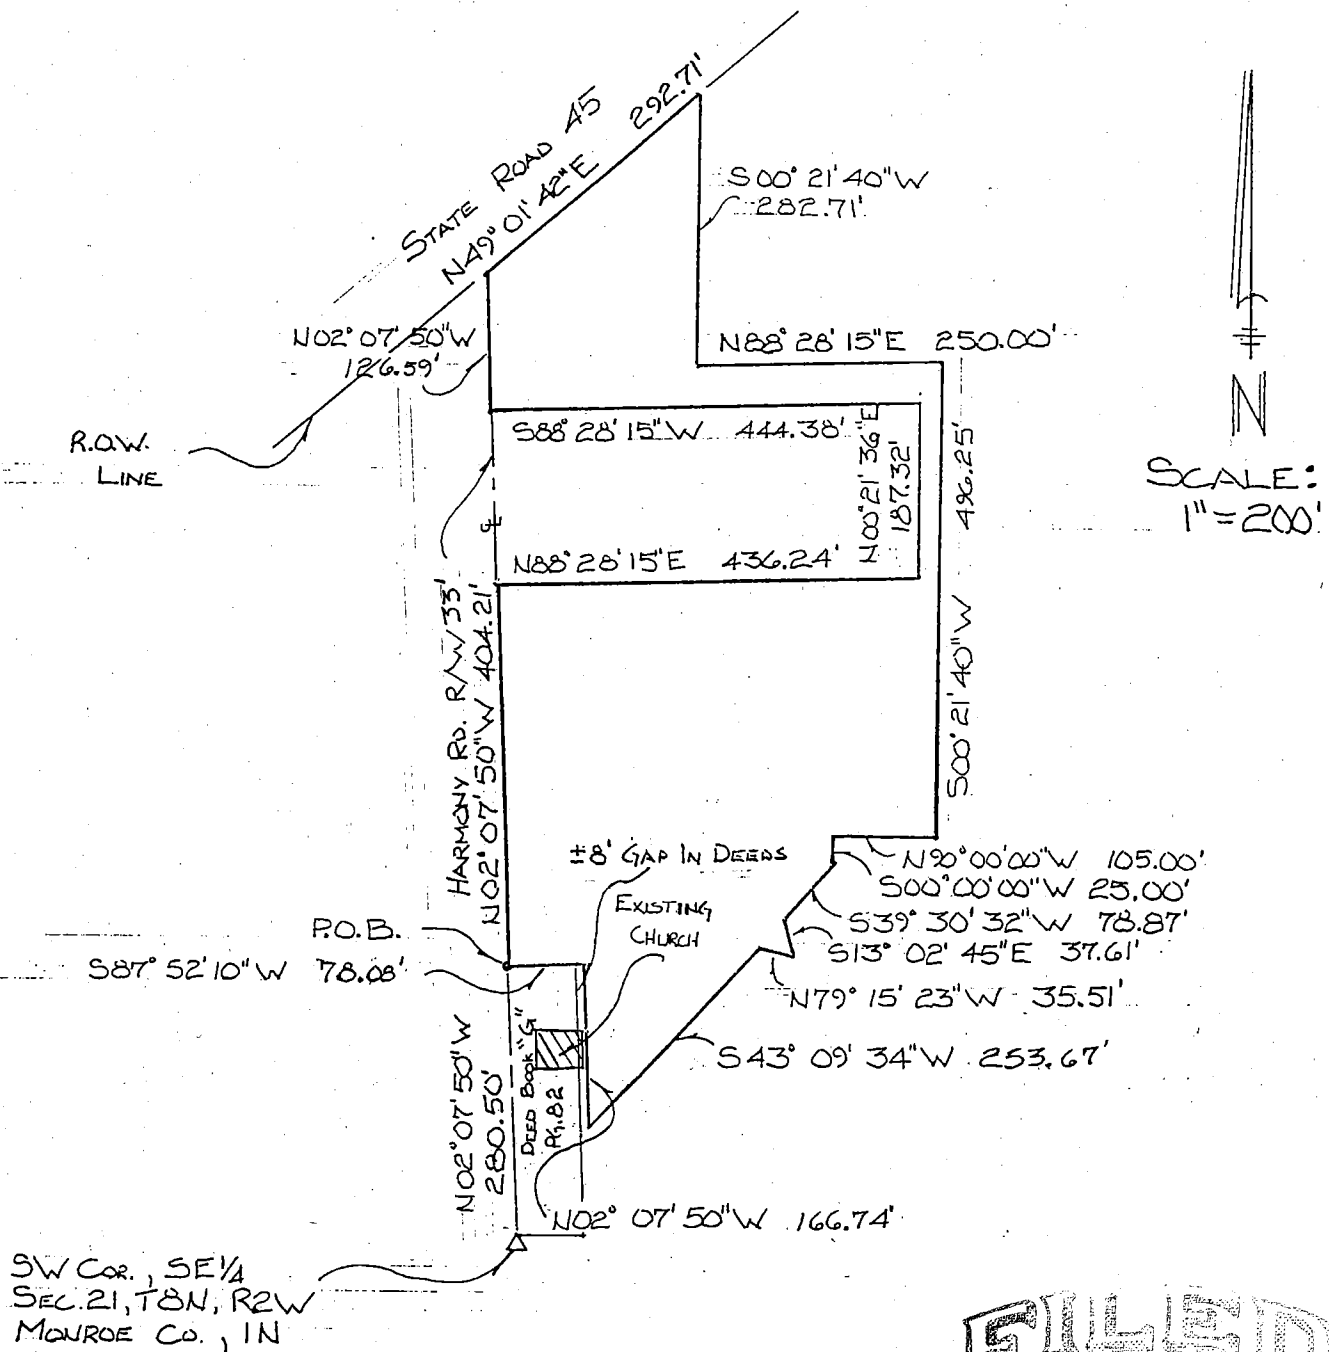 STATE ROAD 45
N49° 01' 42"E 292.71'
S00° 21' 40"W
282.71'
N02° 07' 50"W
126.59'
N88° 28' 15"E 250.00'
R.O.W.
LINE
S88° 28' 15"W 444.38'
N00° 21' 36"E
187.32'
496.25'
S00° 21' 40"W
N
SCALE:
1" = 200'
℄
N88° 28' 15"E 436.24'
HARMONY RD. R/W 33'
N02° 07' 50"W 404.21'
±8' GAP IN DEEDS
EXISTING
CHURCH
N90° 00' 00"W 105.00'
S00° 00' 00"W 25.00'
S39° 30' 32"W 78.87'
S13° 02' 45"E 37.61'
N79° 15' 23"W 35.51'
S43° 09' 34"W 253.67'
P.O.B.
S87° 52' 10"W 78.08'
N02° 07' 50"W
280.50'
DEED BOOK "G"
PG. 82
N02° 07' 50"W 166.74'
SW COR., SE 1/4
SEC. 21, T8N, R2W
MONROE CO., IN
FILED